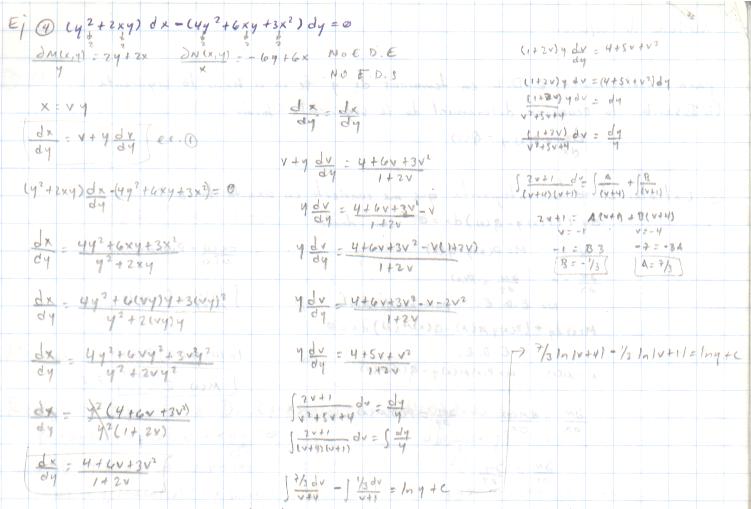 Ej ④ (y²+2xy) dx - (4y²+6xy+3x²) dy = 0
∂M(x,y)/y = 2y+2x   ∂N(x,y)/x = -6y+6x   NO E D.E
NO E D.S
x = vy
dx/dy = v+y dv/dy   ec. ①
(y²+2xy) dx/dy - (4y²+6xy+3x²) = 0
dx/dy = 4y²+6xy+3x² / y²+2xy
dx/dy = 4y²+6(vy)y+3(vy)² / y²+2(vy)y
dx/dy = 4y²+6vy²+3v²y² / y²+2vy²
dx/dy = y²(4+6v+3v²) / y²(1+2v)
dx/dy = 4+6v+3v² / 1+2v
dx/dy = dx/dy
v+y dv/dy = 4+6v+3v² / 1+2v
y dv/dy = 4+6v+3v² / 1+2v - v
y dv/dy = 4+6v+3v² - v(1+2v) / 1+2v
y dv/dy = 4+6v+3v²-v-2v² / 1+2v
y dv/dy = 4+5v+v² / 1+2v
∫ 2v+1 / v²+5v+4 dv = dy/y
∫ 2v+1 / (v+4)(v+1) dv = ∫ dy/y
∫ 7/3 dv / v+4 - ∫ 1/3 dv / v+1 = ln y + c
(1+2v) y dv/dy = 4+5v+v²
(1+2v) y dv = (4+5v+v²) dy
(1+2v) y dv / v²+5v+4 = dy
(1+2v) / v²+5v+4 dv = dy/y
∫ 2v+1 / (v+4)(v+1) dv = ∫ A/(v+4) + ∫ B/(v+1)
2v+1 = A(v+1) + B(v+4)
v = -1   v = -4
-1 = B3   -7 = -3A
B = -1/3   A = 7/3
→ 7/3 ln|v+4| - 1/3 ln|v+1| = ln y + c